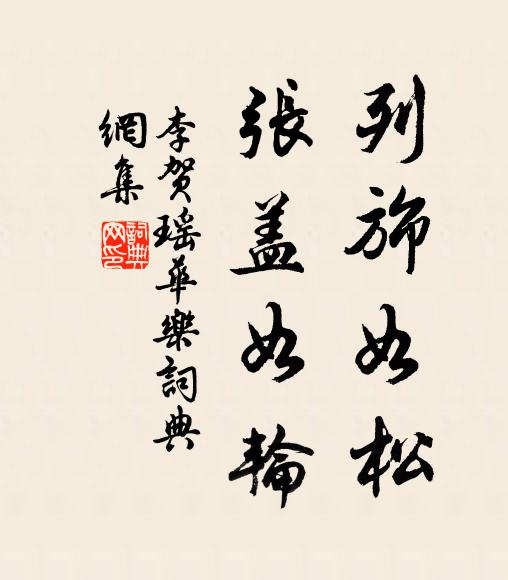 列斾如松
張蓋如輪
李賀瑤華樂詞典
網集
詞典
网印